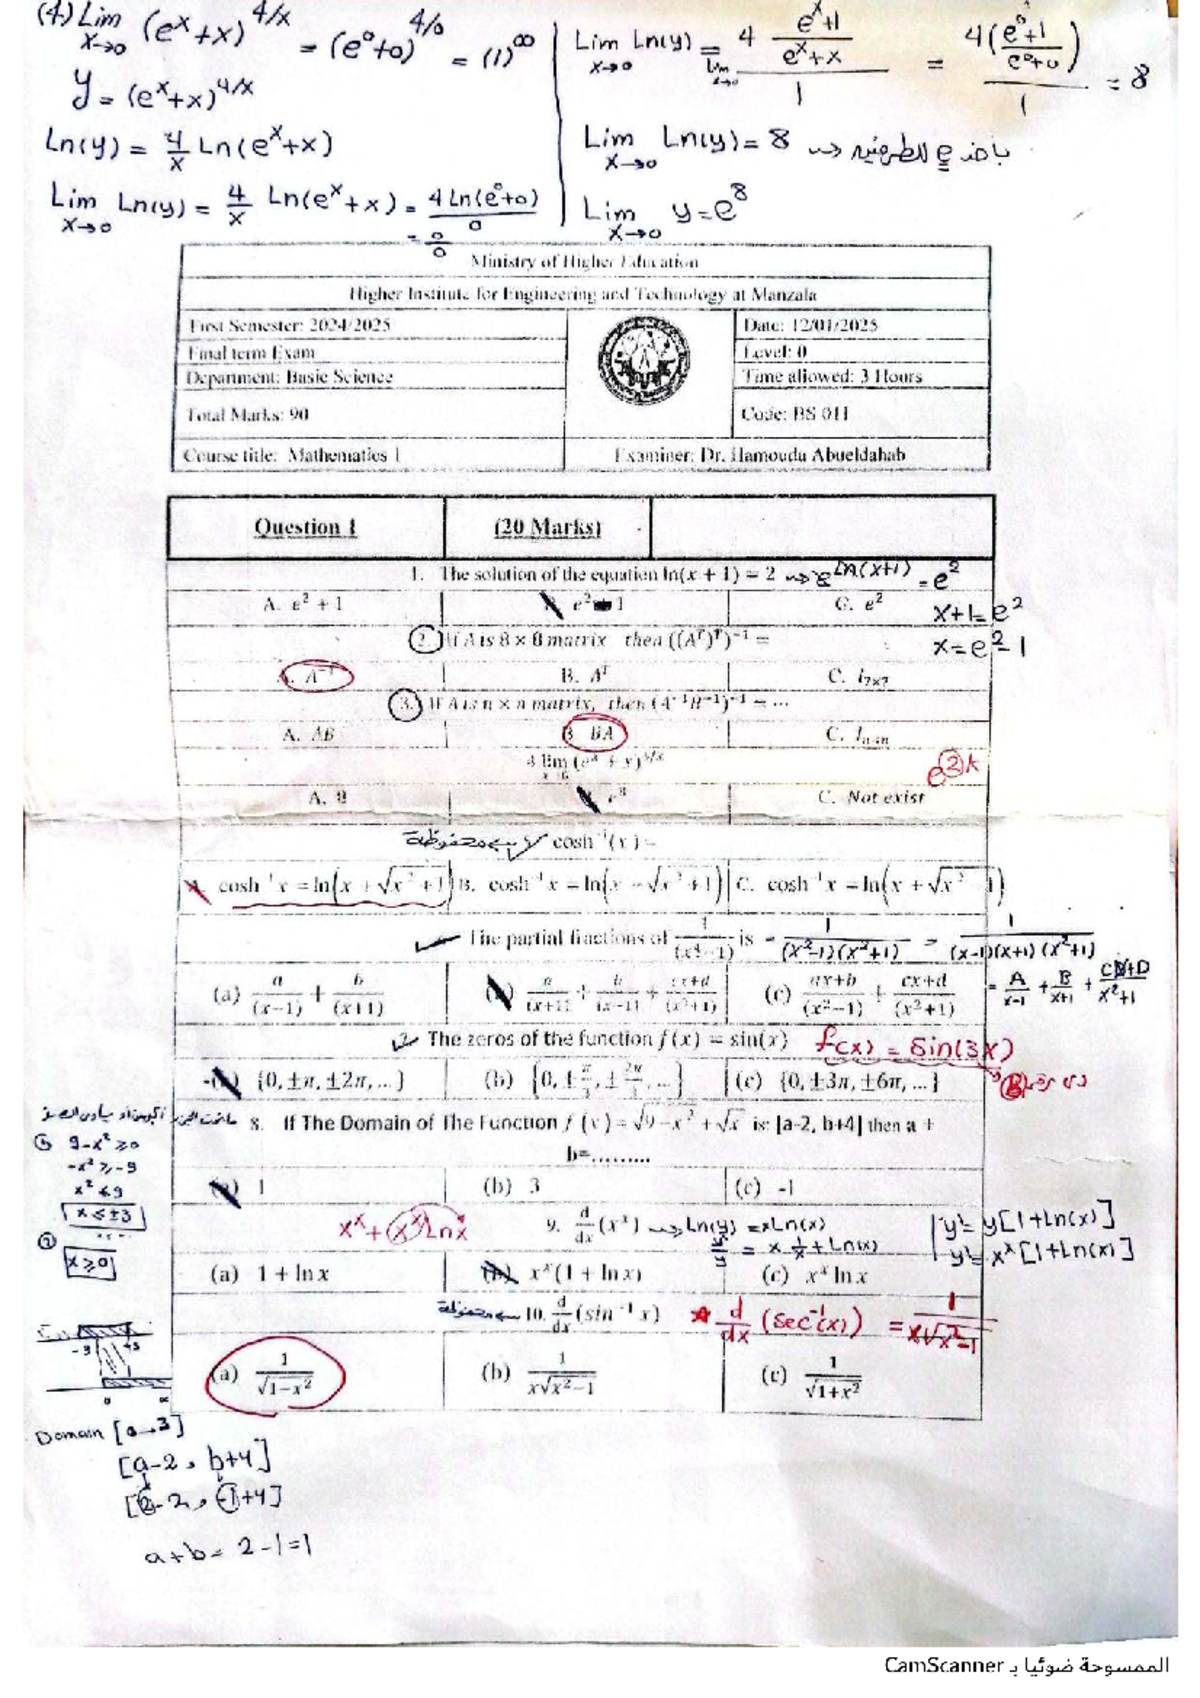 (4) Lim x→0 (e^x+x)^4/x = (e^0+0)^4/0 = (1)^∞
y = (e^x+x)^4/x
Ln(y) = 4/x Ln(e^x+x)
Lim x→0 Ln(y) = 4/x Ln(e^x+x) = 4Ln(e^0+0)/0 = 0/0
Lim x→0 Ln(y) = Lim x→0 4 (e^x+1)/(e^x+x) / 1 = 4((e^0+1)/(e^0+0)) / 1 = 8
Lim x→0 Ln(y) = 8
Lim x→0 y = e^8
Ministry of Higher Education
Higher Institute for Engineering and Technology at Manzala
First Semester: 2024/2025
Date: 12/01/2025
Final term Exam
Level: 0
Department: Basic Science
Time allowed: 3 Hours
Total Marks: 90
Code: BS 011
Course title: Mathematics 1
Examiner: Dr. Hamouda Abueldahab
Question 1 (20 Marks)
1. The solution of the equation ln(x + 1) = 2 → e^Ln(x+1) = e^2
A. e² + 1 e² - 1 C. e²
x+1=e^2
x=e^2-1
2. If A is 8 × 8 matrix then ((A^T)^T)^-1 =
B. A^T C. I7×7
3. If A is n × n matrix, then (A^-1B^-1)^-1 = ...
A. AB B. BA C. In×n
4 lim x→0 (e^x + x)^4/x
e^2k
A. 8 e^8 C. Not exist
محفوظة cosh^-1(x) =
A. cosh^-1 x = ln(x + √(x² + 1)) B. cosh^-1 x = ln(x − √(x² + 1)) C. cosh^-1 x = ln(x + √(x² − 1))
The partial fractions of 1/(x⁴−1) is = 1/((x²-1)(x²+1)) = 1/((x-1)(x+1)(x²+1))
= A/(x-1) + B/(x+1) + (Cx+D)/(x²+1)
(a) a/(x−1) + b/(x+1) a/(x+1) + b/(x−1) + (cx+d)/(x²+1) (c) (ax+b)/(x²−1) + (cx+d)/(x²+1)
The zeros of the function f(x) = sin(x) f(x) = Sin(3x)
{0, ±π, ±2π, ...} (b) {0, ±π/3, ±2π/3, ...} (c) {0, ±3π, ±6π, ...}
8. If The Domain of The Function f(x) = √(9−x²) + √x is: [a-2, b+4] then a +
b=.........
1 (b) 3 (c) -1
① 9-x² ≥ 0
-x² ≥ -9
x² ≤ 9
x ≤ ±3
②
x ≥ 0
x^x + x^x Ln x
9. d/dx (x^x) → Ln(y) = xLn(x)
y'/y = x 1/x + Ln(x)
y' = y[1+Ln(x)]
y' = x^x [1+Ln(x)]
(a) 1 + ln x x^x(1 + ln x) (c) x^x ln x
محفوظة 10. d/dx (sin^-1 x) d/dx (Sec^-1(x)) = 1/(x√(x²-1))
(a) 1/√(1−x²) (b) 1/(x√(x²−1)) (c) 1/√(1+x²)
Domain [0→3]
[a-2, b+4]
[2-2, -1+4]
a+b = 2-1=1
الممسوحة ضوئيا بـ CamScanner